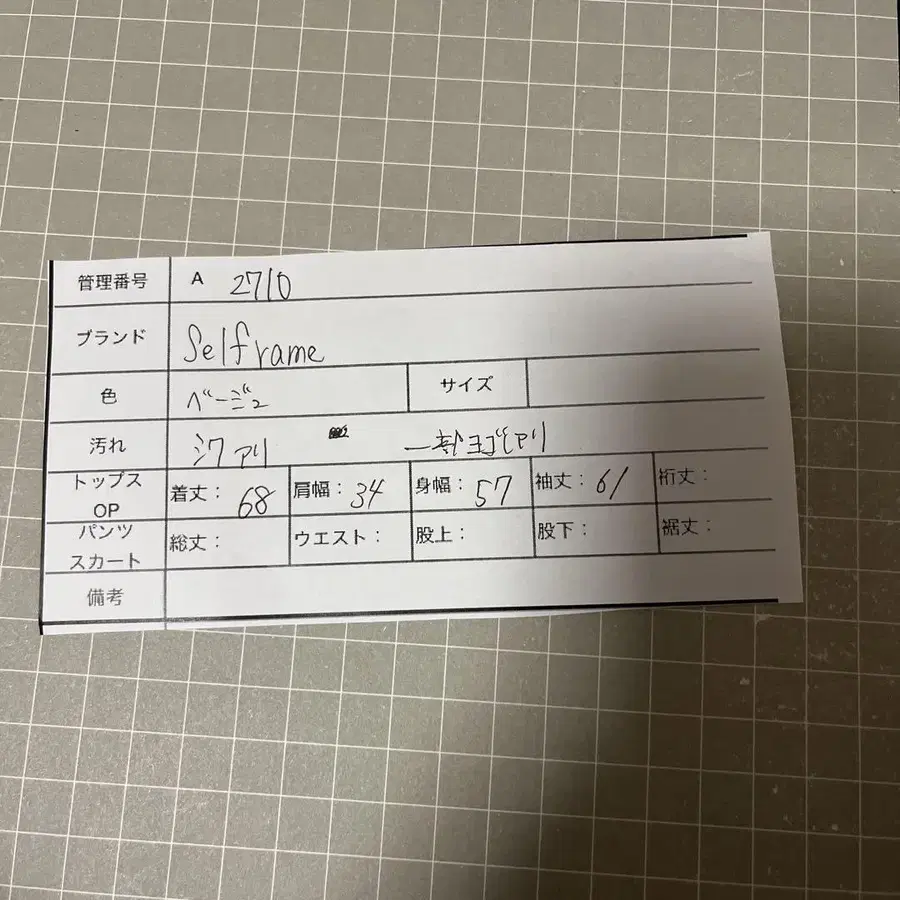 管理番号 A 2710
ブランド Selframe
色 ベージュ サイズ
汚れ シワアリ 一部ヨゴレアリ
トップス OP 着丈：68 肩幅：34 身幅：57 袖丈：61 裄丈：
パンツ スカート 総丈： ウエスト： 股上： 股下： 裾丈：
備考